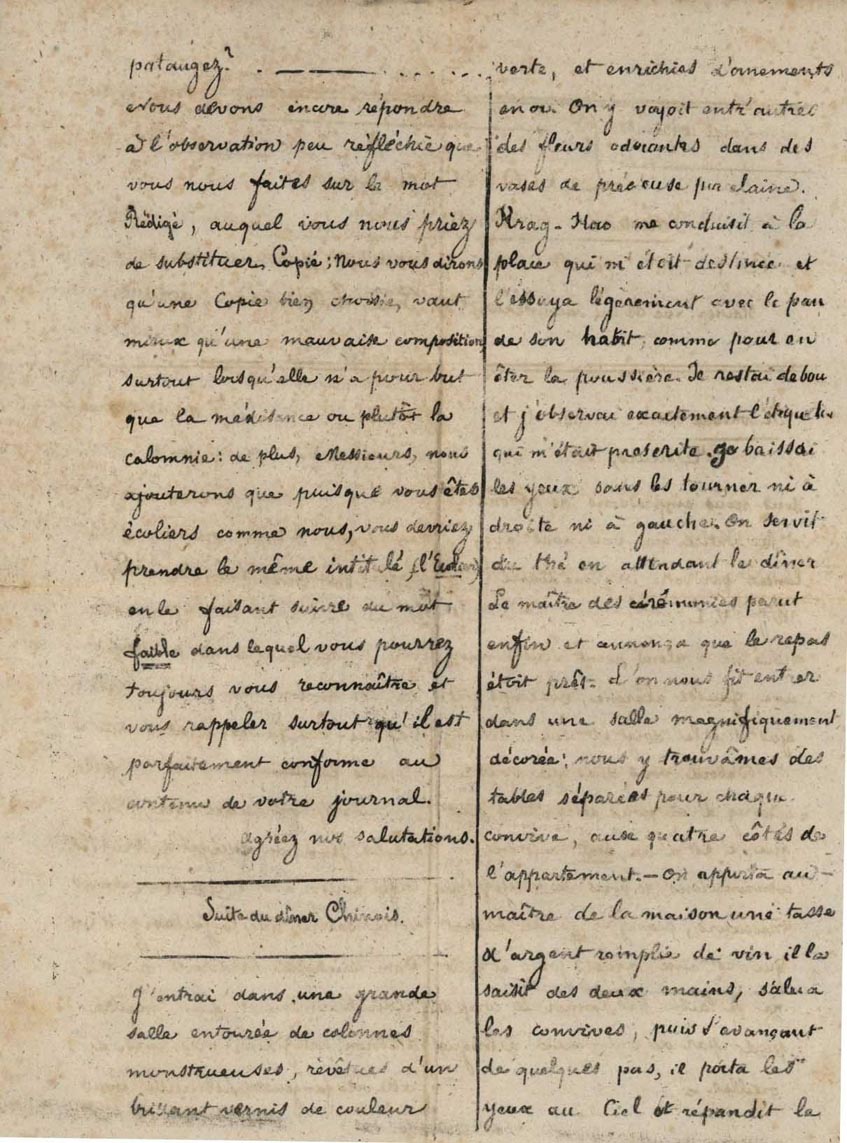 pataugez? . ——— . . . . . .
Nous devons encore répondre
à l'observation peu réfléchie que
vous nous faites sur le mot
Rédigé, auquel vous nous priez
de substituer, Copié; Nous vous dirons
qu'une Copie bien choisie, vaut
mieux qu'une mauvaise composition
surtout lorsqu'elle n'a pour but
que la médisance ou plutôt la
calomnie: de plus, Messieurs, nous
ajouterons que puisque vous êtes
écoliers comme nous, vous devriez
prendre le même intitulé
en le faisant suivre du mot
faible dans lequel vous pourrez
toujours vous reconnaître et
vous rappeler surtout qu'il est
parfaitement conforme au
contenu de votre journal.
agréez nos salutations.
Suite du dîner Chinois.
J'entrai dans une grande
salle entourée de colonnes
monstrueuses, revêtues d'un
brillant vernis de couleur
verte, et enrichies d'ornements
en or. On y voyoit entr'autres
des fleurs odorantes dans des
vases de précieuse porcelaine.
Krag-Hao me conduisit à la
place qui m'étoit destinée et
l'essuya légèrement avec le pan
de son habit, comme pour en
ôter la poussière. Je restai debou
et j'observai exactement l'étiquette
qui m'était prescrite. Je baissai
les yeux sans les tourner ni à
droite ni à gauche. On servit
du thé en attendant le dîner
Le maître des cérémonies parut
enfin et annonça que le repas
étoit prêt. L'on nous fit entrer
dans une salle magnifiquement
décorée; nous y trouvâmes des
tables séparées pour chaque
convive, aux quatre côtés de
l'appartement. — On apporta au
maître de la maison une tasse
d'argent remplie de vin il la
saisit des deux mains, salua
les convives, puis s'avançant
de quelques pas, il porta les
yeux au Ciel et répandit le